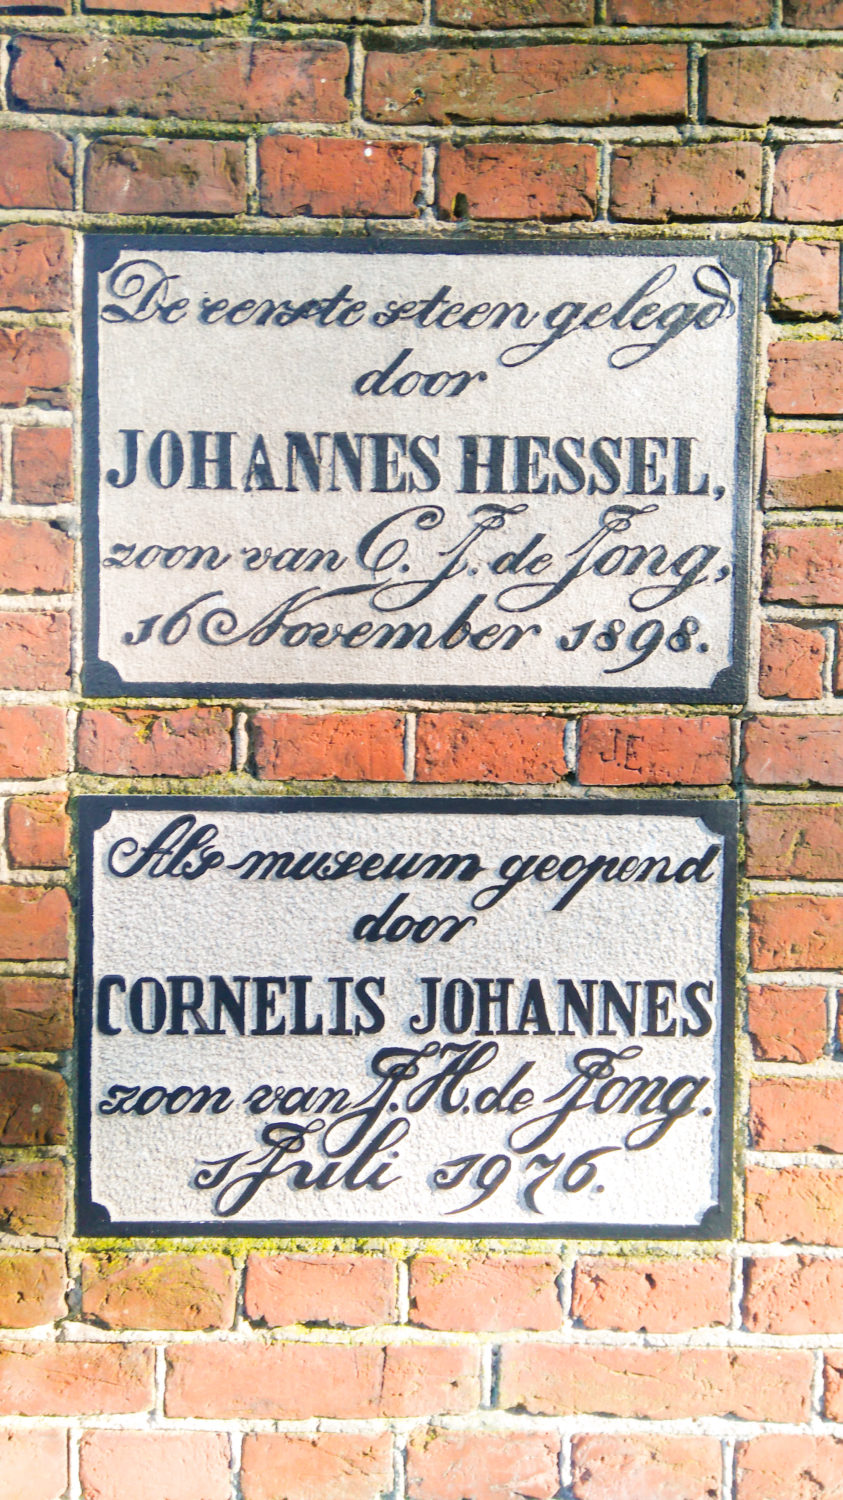 De eerste steen gelegd
door
JOHANNES HESSEL,
zoon van C. J. de Jong,
16 November 1898.
JE
Als museum geopend
door
CORNELIS JOHANNES
zoon van J. H. de Jong.
1 Juli 1976.